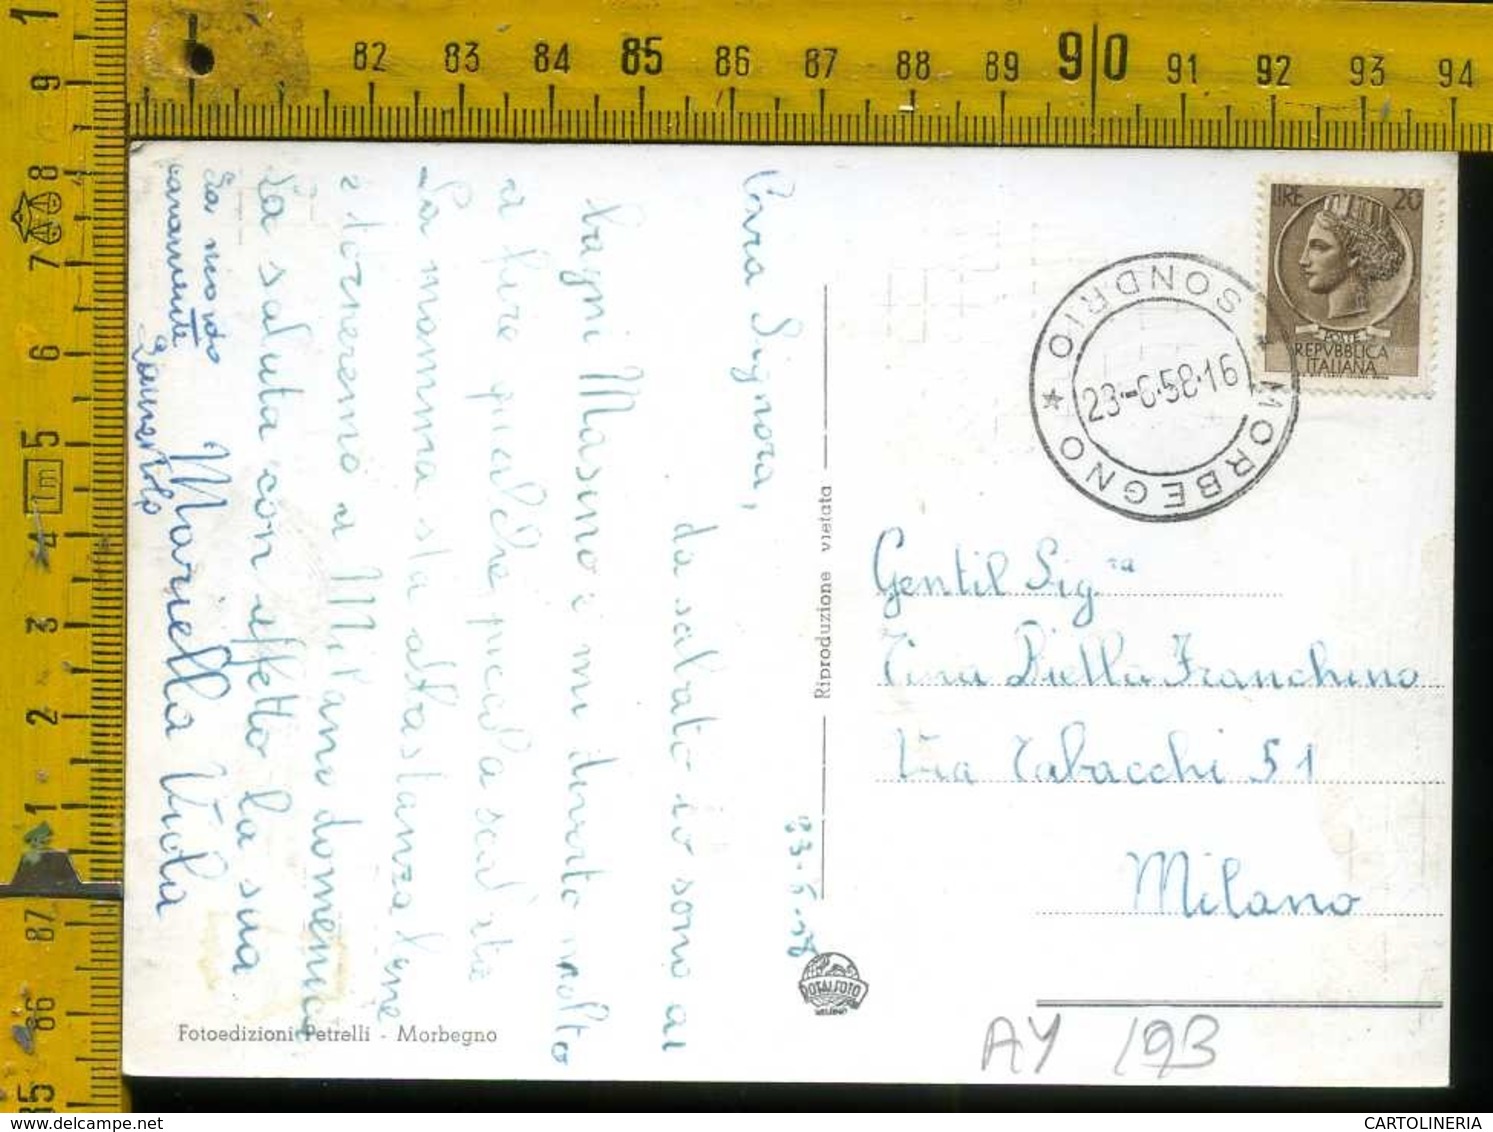 82 83 84 85 86 87 88 89 90 91 92 93 94
1
9
8
7
6
5
1m
4
3
2
1
87
86
85
23-6-58
Cara Signora,
da sabato io sono ai
bagni Masino e mi diverto molto
a fare qualche piccola scalata
La mamma sta abbastanza bene
e torneremo a Milano domenica
La saluta con affetto la sua
Mariella Viola
La ricordo
caramente
Fotoedizioni Petrelli - Morbegno
Riproduzione vietata
ROTALFOTO
MILANO
LIRE 20
POSTE
REPVBBLICA
ITALIANA
MORBEGNO * SONDRIO *
23-6-58-16
Gentil Sig.ra
Tina Biella Franchino
Via Tabacchi 51
Milano
AY 193
CARTOLINERIA